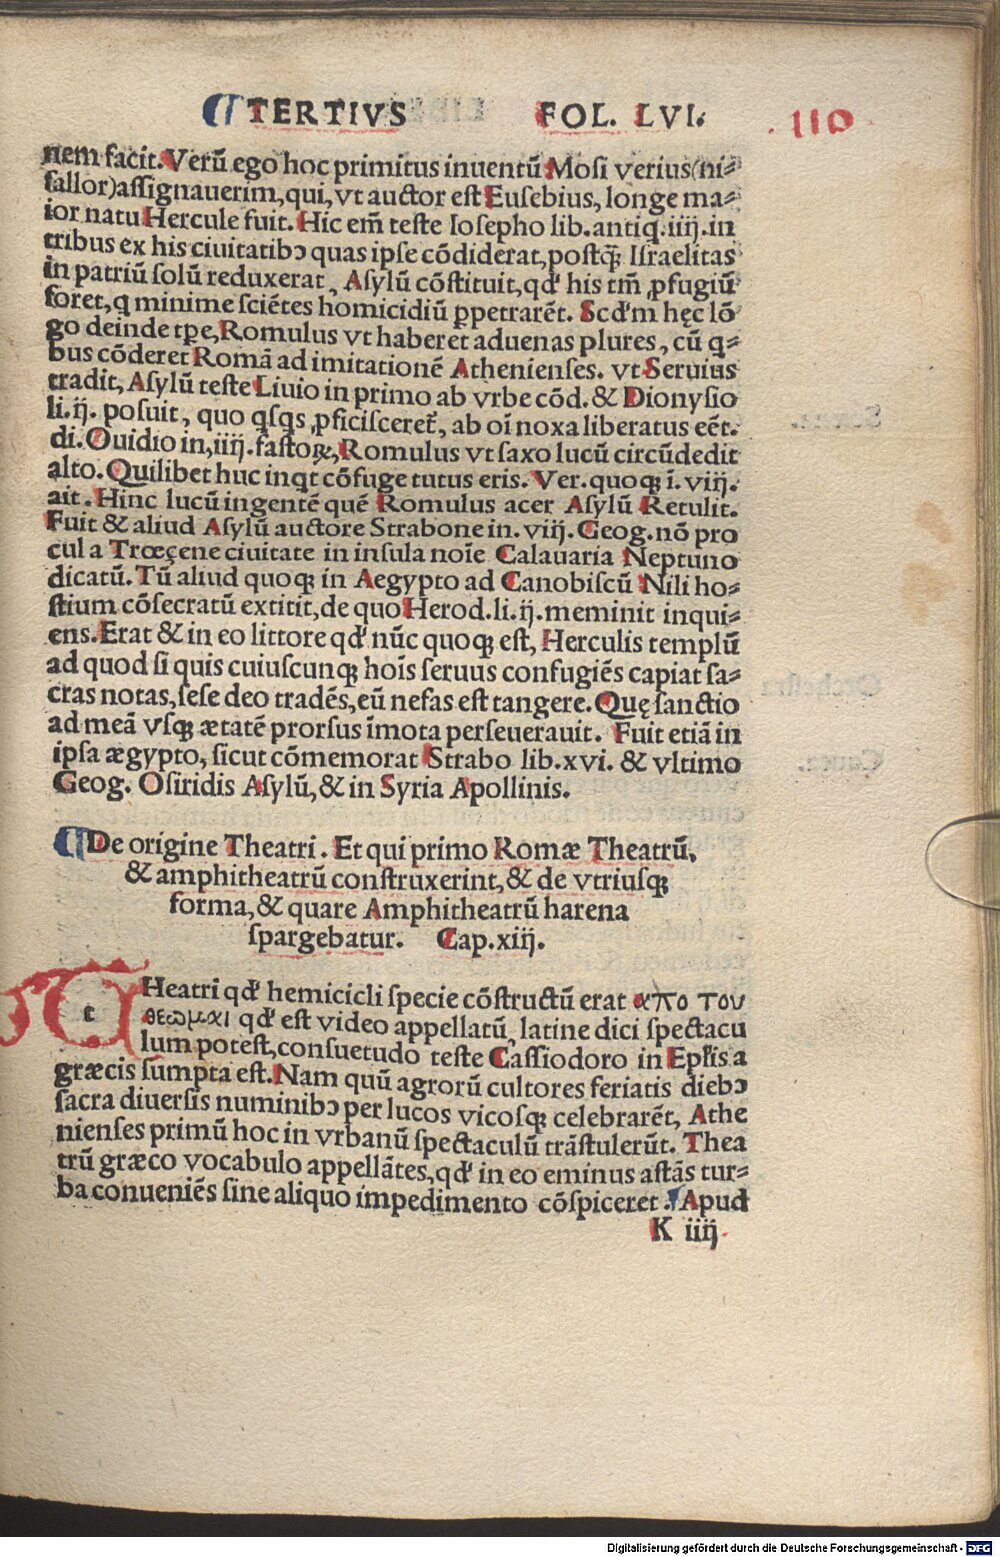 ¶ TERTIVS FOL. LVI. 110
nem facit. Verũ ego hoc primitus inuentũ Mosi verius(ni⸗
fallor)assignauerim, qui, vt auctor est Eusebius, longe ma⸗
ior natu Hercule fuit. Hic em̃ teste Iosepho lib. antiq. iiij. in
tribus ex his ciuitatibꝰ quas ipse cõdiderat, postq̃ Israelitas
in patriũ solũ reduxerat, Asylũ cõstituit, qđ his tm̃ ꝓfugiũ
foret, q minime sciẽtes homicidiũ ꝑpetrarẽt. Scđ'm hęc lõ
go deinde tꝑe, Romulus vt haberet aduenas plures, cũ q⸗
bus cõderet Romã ad imitationẽ Athenienses. vt Seruius
tradit, Asylũ teste Liuio in primo ab vrbe cõd. & Dionysio
li. ij. posuit, quo qsqs ꝓficisceret̃, ab oĩ noxa liberatus eẽt.
di. Ouidio in, iiij. fastoꝝ, Romulus vt saxo lucũ circũdedit
alto. Quilibet huc inqt cõfuge tutus eris. Ver. quoqꝫ ĩ. viij.
ait. Hinc lucũ ingentẽ quẽ Romulus acer Asylũ Retulit.
Fuit & aliud Asylũ auctore Strabone in. viij. Geog. nõ pro
cul a Trœçene ciuitate in insula noĩe Calauaria Neptuno
dicatũ. Tũ aliud quoqꝫ in Aegypto ad Canobiscũ Nili ho⸗
stium cõsecratũ extitit, de quo Herod. li. ij. meminit inqui⸗
ens. Erat & in eo littore qđ nũc quoqꝫ est, Herculis templũ
ad quod si quis cuiuscunqꝫ hoĩs seruus confugiẽs capiat sa⸗
cras notas, sese deo tradẽs, eũ nefas est tangere. Quę sanctio
ad meã vsqꝫ ætatẽ prorsus ĩmota perseuerauit. Fuit etiã in
ipsa ægypto, sicut cõmemorat Strabo lib. xvi. & vltimo
Geog. Osiridis Asylũ, & in Syria Apollinis.
¶ De origine Theatri. Et qui primo Romæ Theatrũ,
& amphitheatrũ construxerint, & de vtriusqꝫ
forma, & quare Amphitheatrũ harena
spargebatur. Cap. xiij.
THeatri qđ hemicicli specie cõstructũ erat απο του
θεωμαι qđ est video appellatũ, latine dici spectacu
lum potest, consuetudo teste Cassiodoro in Ep̃lis a
græcis sumpta est. Nam quũ agrorũ cultores feriatis diebꝰ
sacra diuersis numinibꝰ per lucos vicosqꝫ celebrarẽt, Athe
nienses primũ hoc in vrbanũ spectaculũ trãstulerũt. Thea
trũ græco vocabulo appellãtes, qđ in eo eminus astãs tur⸗
ba conueniẽs sine aliquo impedimento cõspiceret. ¶ Apud
K iiij
Digitalisierung gefördert durch die Deutsche Forschungsgemeinschaft - DFG